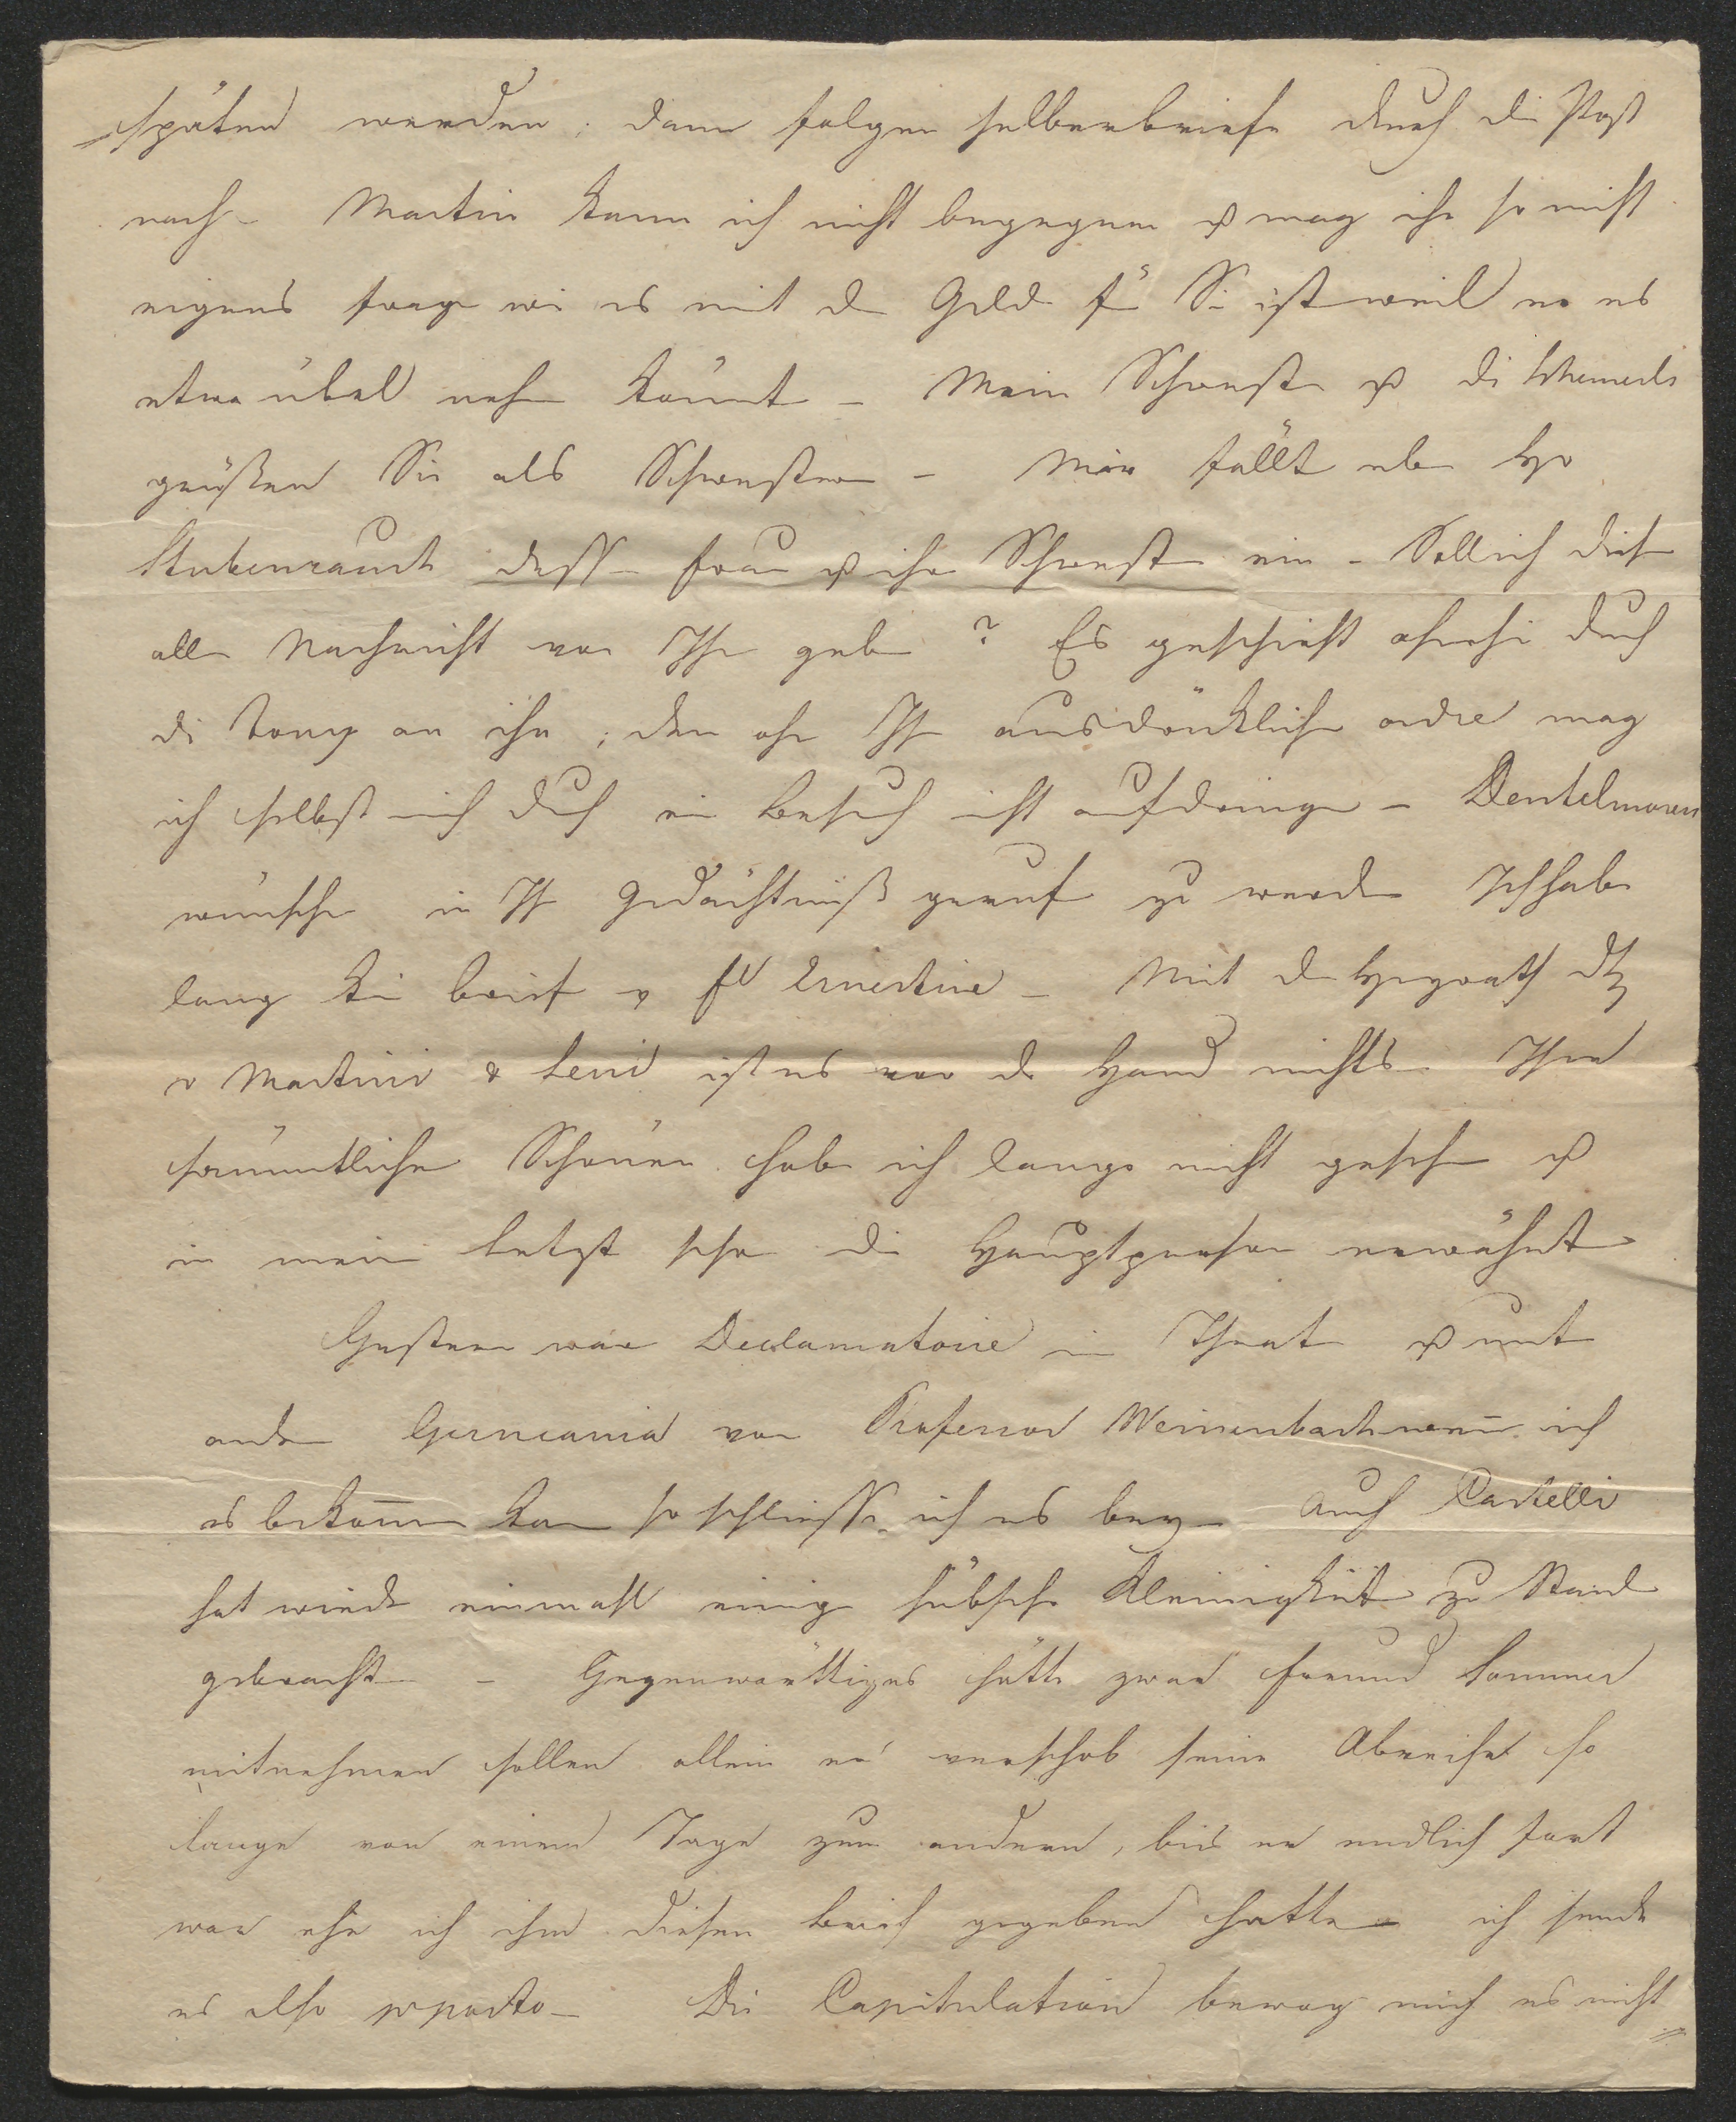 späten werden; dann folgen selber briefe durch die Post
nach – Martin kann ich nicht begegnen u mag ihn so nicht
eigens frage wie es mit d Geld fü Sie ist weil er es
etwa übel nehm könnt – Mein Schwest u di
grüßen Sie als Schwester – Mir fällt eben Hr
Stubenrauch dess Frau u ihr Schwest ein – Soll ich dies
alle Nachricht von Ih geb? Es geschieht ohnehi durch
di Tony an ihn; den ohn Ih ausdrückliche ordre mag
ich selbst mich duch ein Besuch nicht aufdringe –
wünsche in Ih Gedächtniß geruf zu werde Ich habe
lang kei brief v Frl Ernestine – Mit d Heyrath
v Martini & Leni ist es vor d Hand nichts. Ihre
sämmtliche Schönen habe ich lange nicht geseh u
in mein letzt scho die Hauptperson erwähnt
Gestern war Declamatorie in Theat u unt
ander Germania von Professor Weissenbach wenn ich
es bekomm kan so schliesse ich es bey – Auch Castelli
hat wieder einmahl einige hübsche Kleinigkeite zu Stand
gebracht – Gegenwärttiges hätte zwar Freund Sommer
mitnehmen sollen allein er verschob seine Abreise so
lange von einem Tage zum andern, bis er endlich fort
war ehe ich ihm diesen Brief gegeben hatte – ich sende
es also pr posto – Die Capitulation bewog mich es nicht